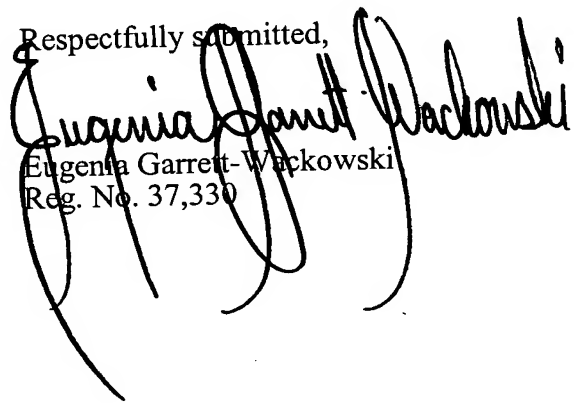 Respectfully submitted,
Eugenia Garrett-Wackowski
Eugenia Garrett-Wackowski
Reg. No. 37,330